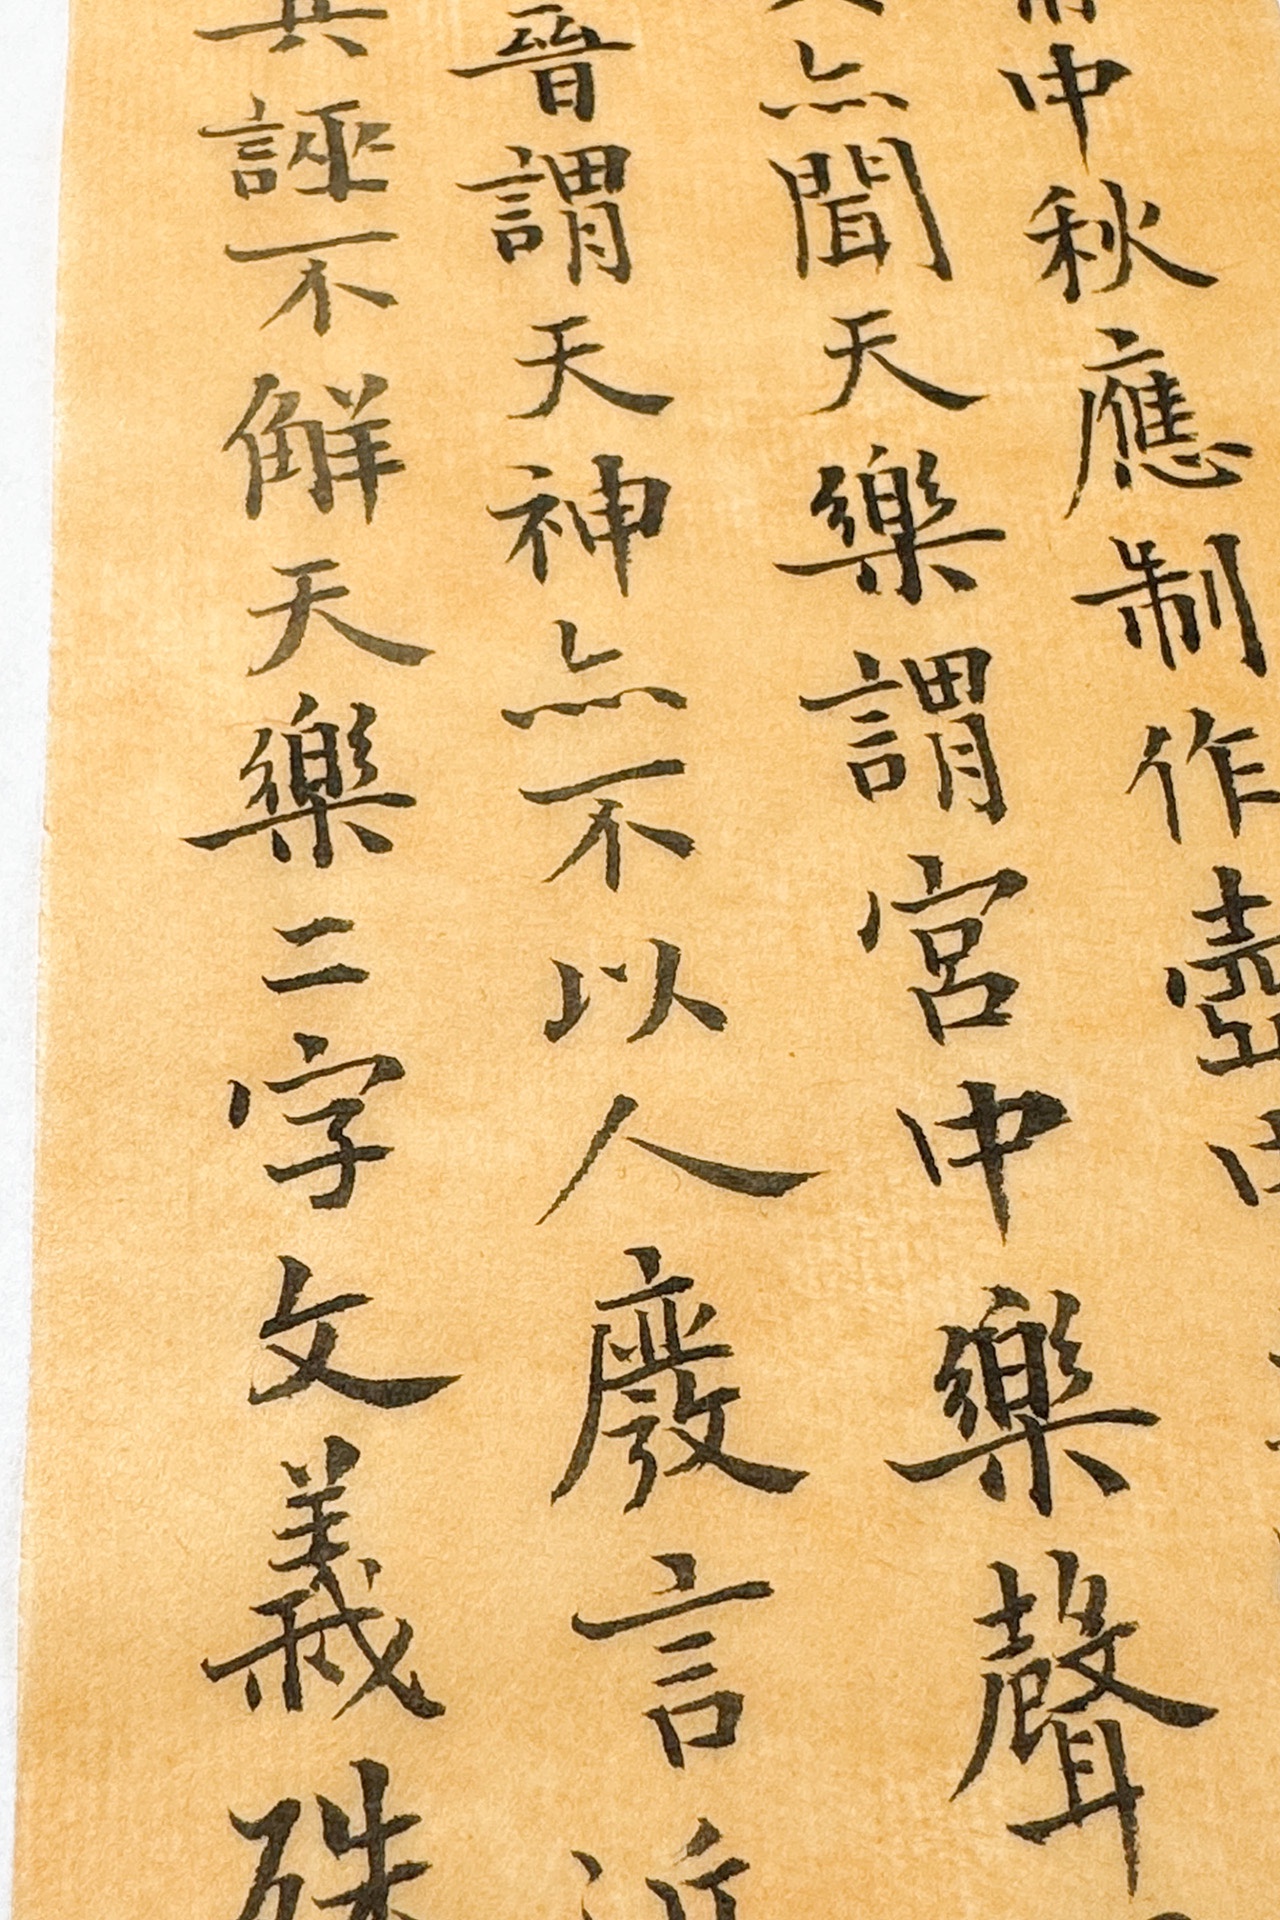 中秋應制作壺中
亦聞天樂謂宮中樂聲
晉謂天神亦不以人廢言近
其誣不解天樂二字文義殊